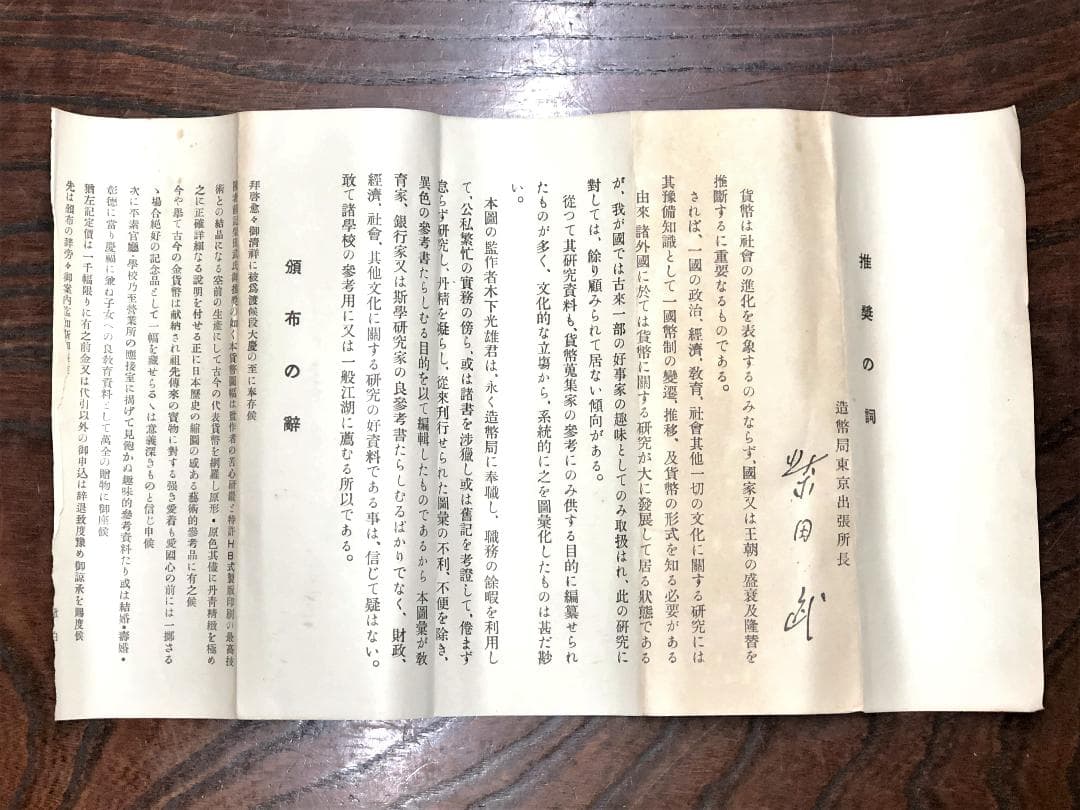 推奬の詞
造幣局東京出張所長
柴田
貨幣は社會の進化を表象するのみならず、國家又は王朝の盛衰及隆替を
推斷するに重要なるものである。
されば、一國の政治、經濟、敎育、社會其他一切の文化に關する研究には
其豫備知識として一國幣制の變遷、推移、及貨幣の形式を知る必要がある
由來 諸外國に於ては貨幣に關する研究が大に發展して居る狀態である
が、我が國では古來一部の好事家の趣味としてのみ取扱はれ、此の研究に
對しては、餘り顧みられて居ない傾向がある。
從つて其硏究資料も、貨幣蒐集家の參考にのみ供する目的に編纂せられ
たものが多く、文化的な立塲から、系統的に之を圖彙化したものは甚だ尠
い。
本圖の監作者木下光雄君は、永く造幣局に奉職し、職務の餘暇を利用し
て、公私繁忙の實務の傍ら、或は諸書を涉獵し或は舊記を考證して、倦まず
怠らず硏究し、丹精を凝らし、從來刋行せられた圖彙の不利、不便を除き、
異色の參考書たらしむる目的を以て編輯したものであるから 本圖彙が敎
育家、銀行家又は斯學硏究家の良參考書たらしむるばかりでなく、財政、
經濟、社會、其他文化に關する硏究の好資料である事は、信じて疑はない。
敢て諸學校の參考用に又は一般江湖に薦むる所以である。
頒布の辭
拜啓愈々御淸祥に被爲渡候段大慶の至に奉存候
の如く本貨幣圖幅は監作者の苦心硏鑽と特許HB式製版印刷の最高技
術との結晶になる空前の生產にして古今の代表貨幣を網羅し原形・原色其儘に丹靑精緻を極め
之に正確詳細なる說明を付せる正に日本歷史の縮圖の感ある藝術的參考品に有之候
今や擧て古今の金貨幣は献納され祖先傳來の寶物に對する强き愛着も愛國心の前には一擲さる
ゝ塲合絕好の記念品として一幅を藏せらるゝは意義深きものと信じ申候
次に平素官廳・學校乃至營業所の應接室に揭げて見飽かぬ趣味的參考資料たり或は結婚・壽婚・
彰德に當り慶福に兼ね子女への良敎育資料として萬全の贈物に御座候
猶左記定價は一千幅限りに有之前金又は代引以外の御申込は辞退致度豫め御諒承を賜度候
先は頒布の辞旁々御案內